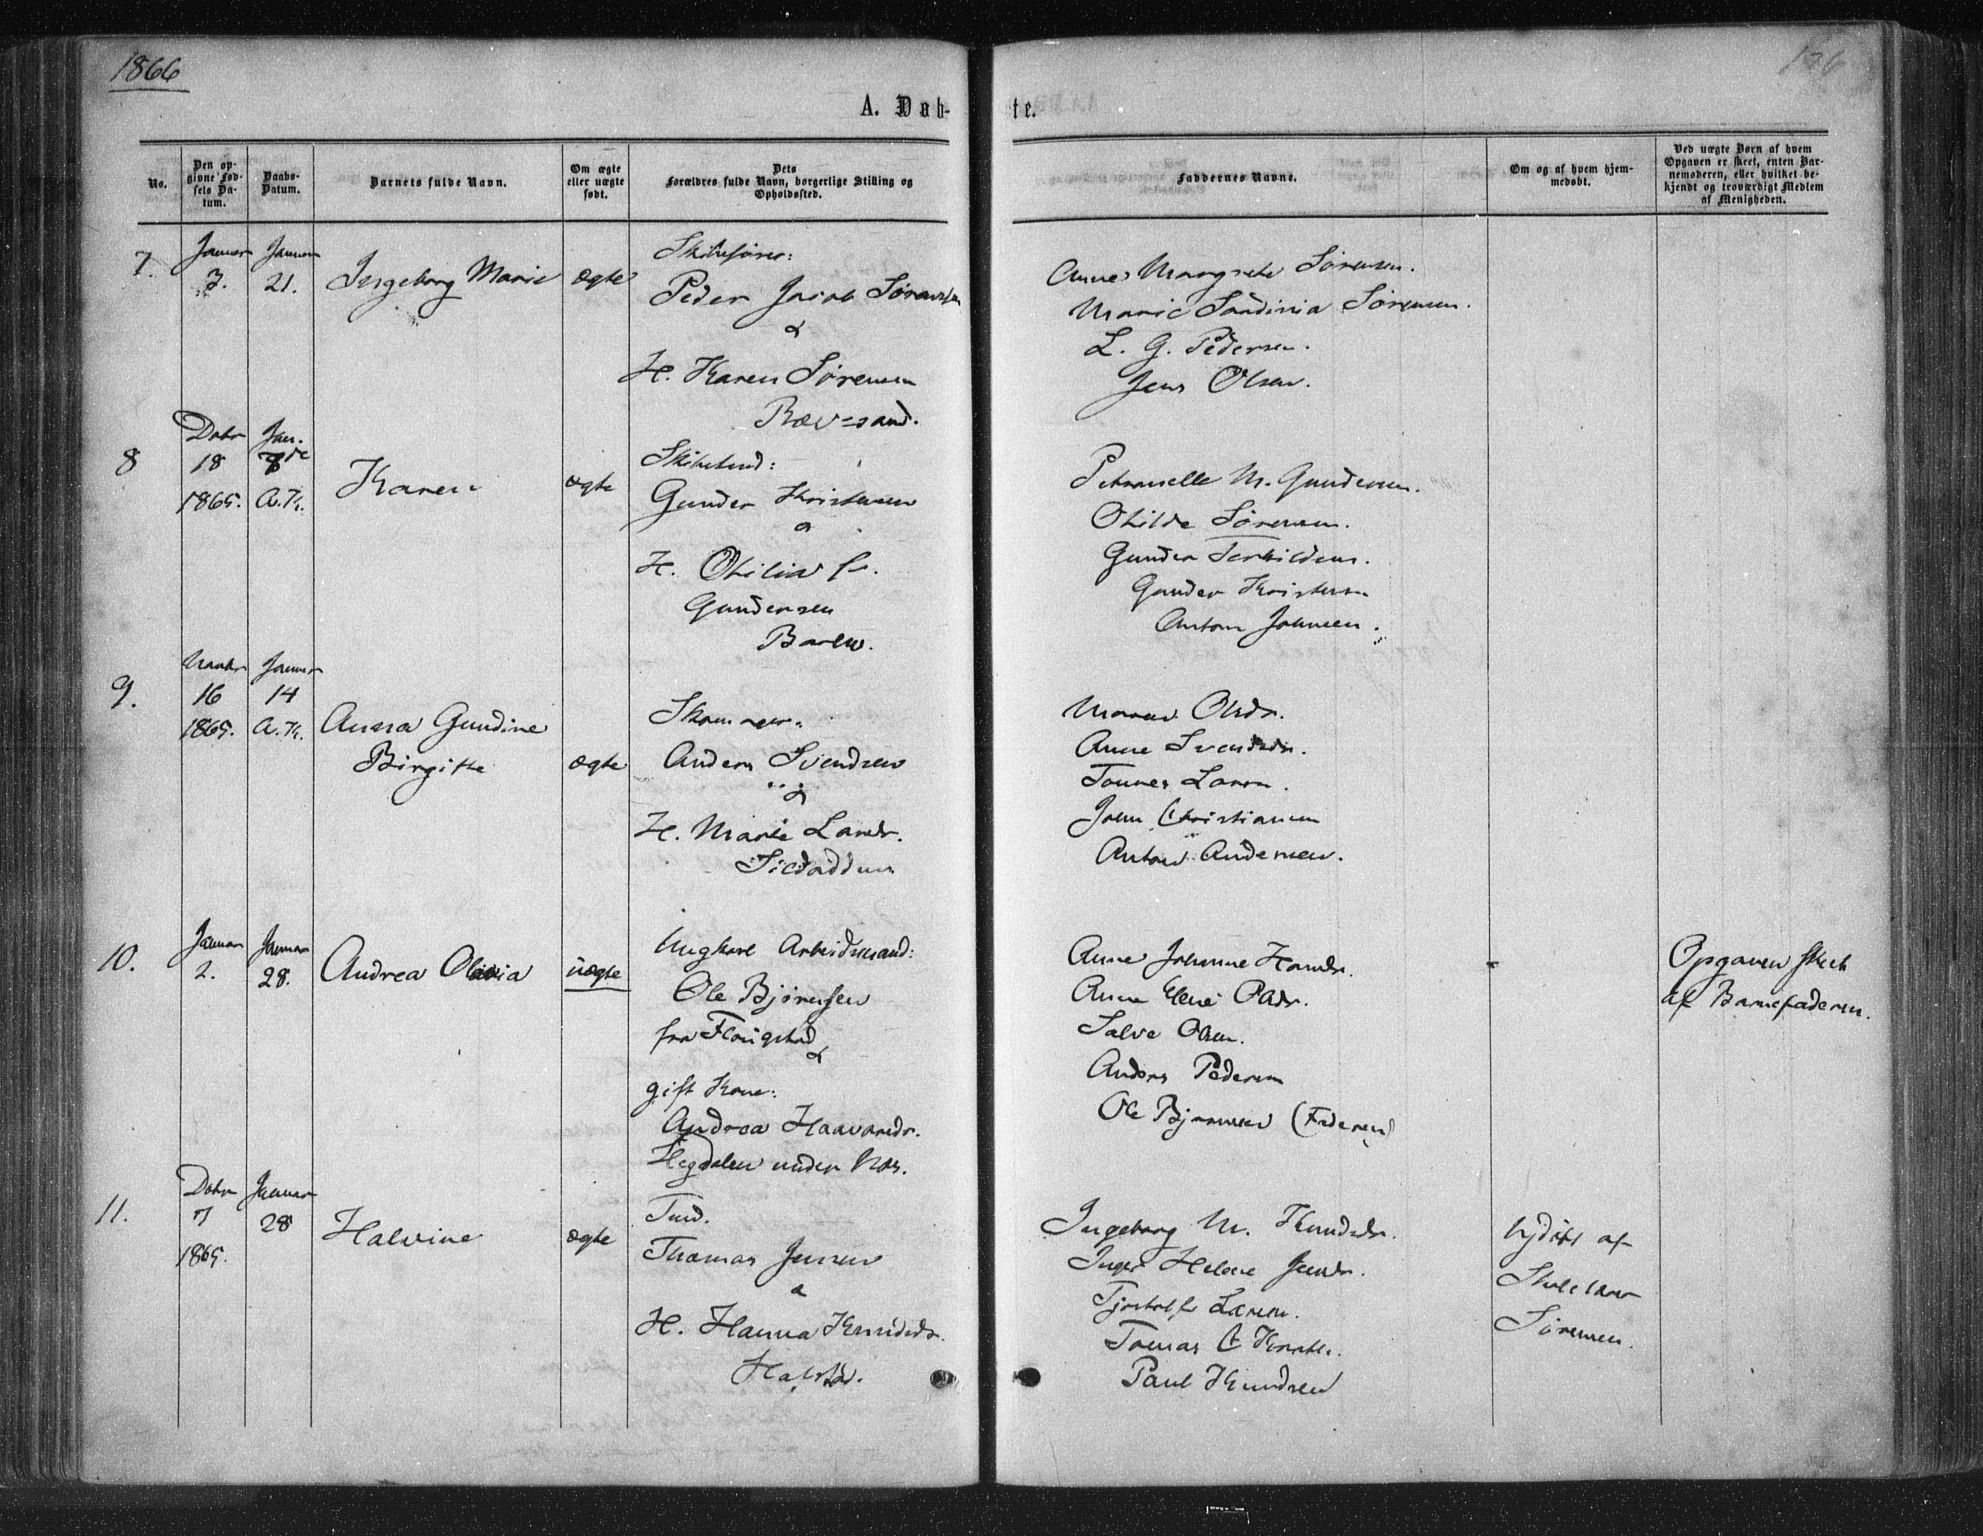 1866
126
A. Døb-
te.
No.
Den op-
givne Fød-
sels Da-
tum.
Daabs-
Datum.
Barnets fulde Navn.
Om ægte
eller uægte
født.
Dets
Forældres fulde Navn, borgerlige Stilling og
Opholdssted.
Faddernes Navne.
Om og af hvem hjem-
medøbt.
Ved uægte Børn af hvem
Opgaven er skeet, enten Bar-
nemoderen, eller hvilket be-
kjendt og troværdigt Medlem
af Menigheden.
7.
Januar
3.
Januar
21.
Ingeborg Marie
ægte
Skibsfører:
Peder Jacob Sørensen
&
H. Karen Sørensen
Rævesand.
Anne Margrete Sørensen.
Marie Sørensen.
L. G. Pedersen.
Jens Olsen.
8
Debr
18
1865.
Jan.
A.K.
Karen
ægte
Gunder Kristensen
&
H. Otilia
Gundersen
Barlev.
Petronelle M. Gundersen.
Otilde Sørensen.
Gunder Terkildsen.
Gunder Kristensen
Anton Johnsen.
9.
16
1865.
Januar
14
A.K.
Anna Gundine
Birgitte
ægte
Anders Svendsen
&
H. Marte Larsdr.
Maren Olsdr.
Anne Svendsdr.
Tønnes Larsen.
John Christiansen
Anton Andersen.
10.
Januar
2.
Januar
28.
Andrea Olavia
uægte
Ungkarl Arbeidsmand:
Ole Bjørnsen
fra Flougstad
&
gift Kone:
Andrea Haavorsdr.
Hegdalen under Næs.
Anne Johanne Hansdr.
Anne Elene Olsdr.
Salve Olsen.
Anders Pedersen
Ole Bjørnsen (Faderen)
Opgaven skeet
af Barnefaderen.
11.
Debr
7
1865.
Januar
28
Halvine
ægte
Tmd.
Thomas Jensen
&
H. Hanna Knudsdr.
Ingeborg M. Knudsdr.
Inger Helene Jensdr.
Tjostolf Larsen.
Tomas
Paul Knudsen
hjdøbt af
Skolelærer
Sørensen.